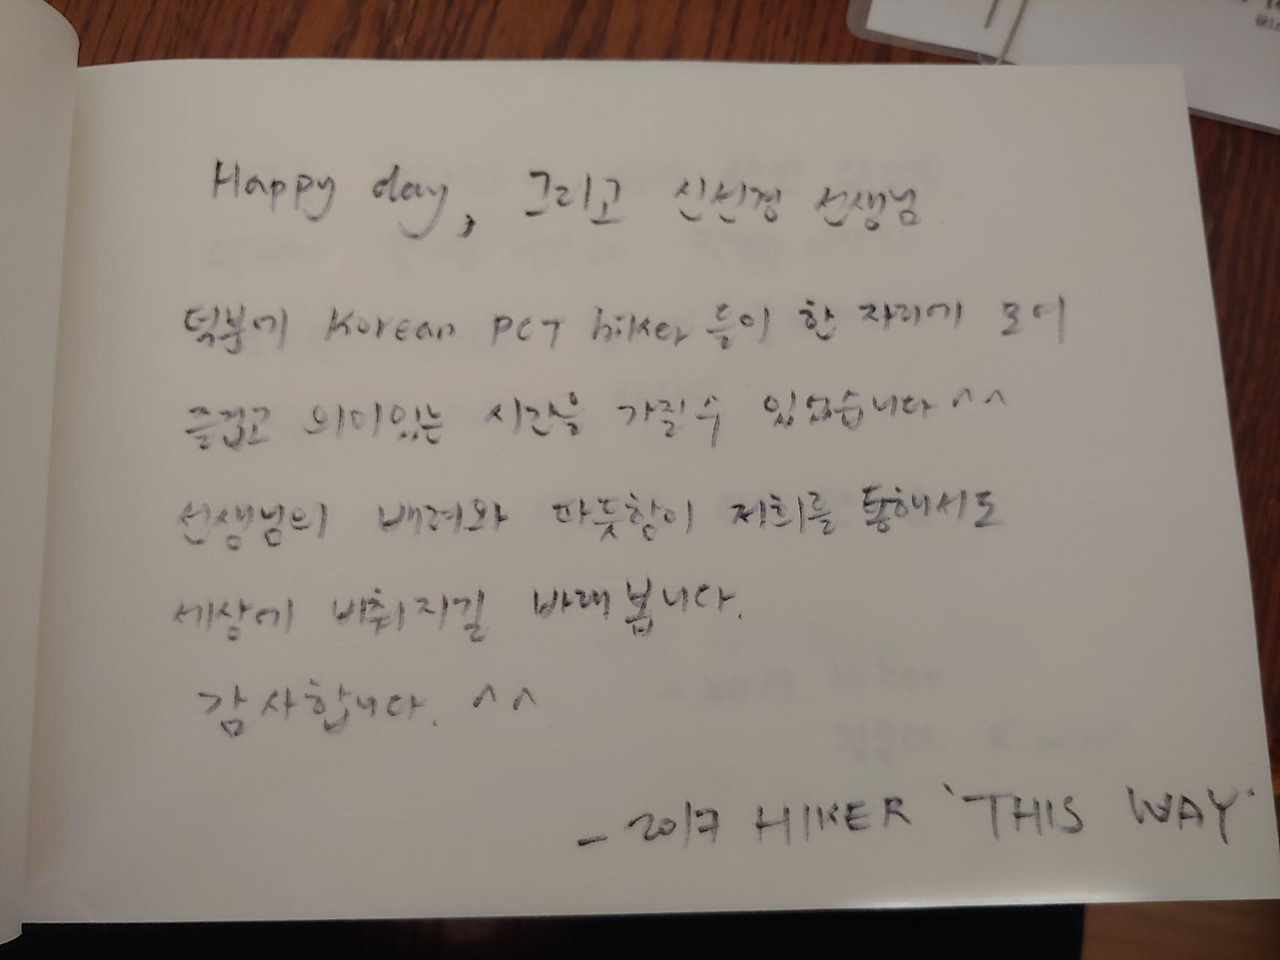 Happy day, 그리고 신선경 선생님
덕분에 Korean PCT hiker들이 한 자리에 모여
즐겁고 의미있는 시간을 가질수 있었습니다^^
선생님의 배려와 따뜻함이 저희를 통해서도
세상에 비춰지길 바래봅니다.
감사합니다. ^^
- 2017 HIKER 'THIS WAY'